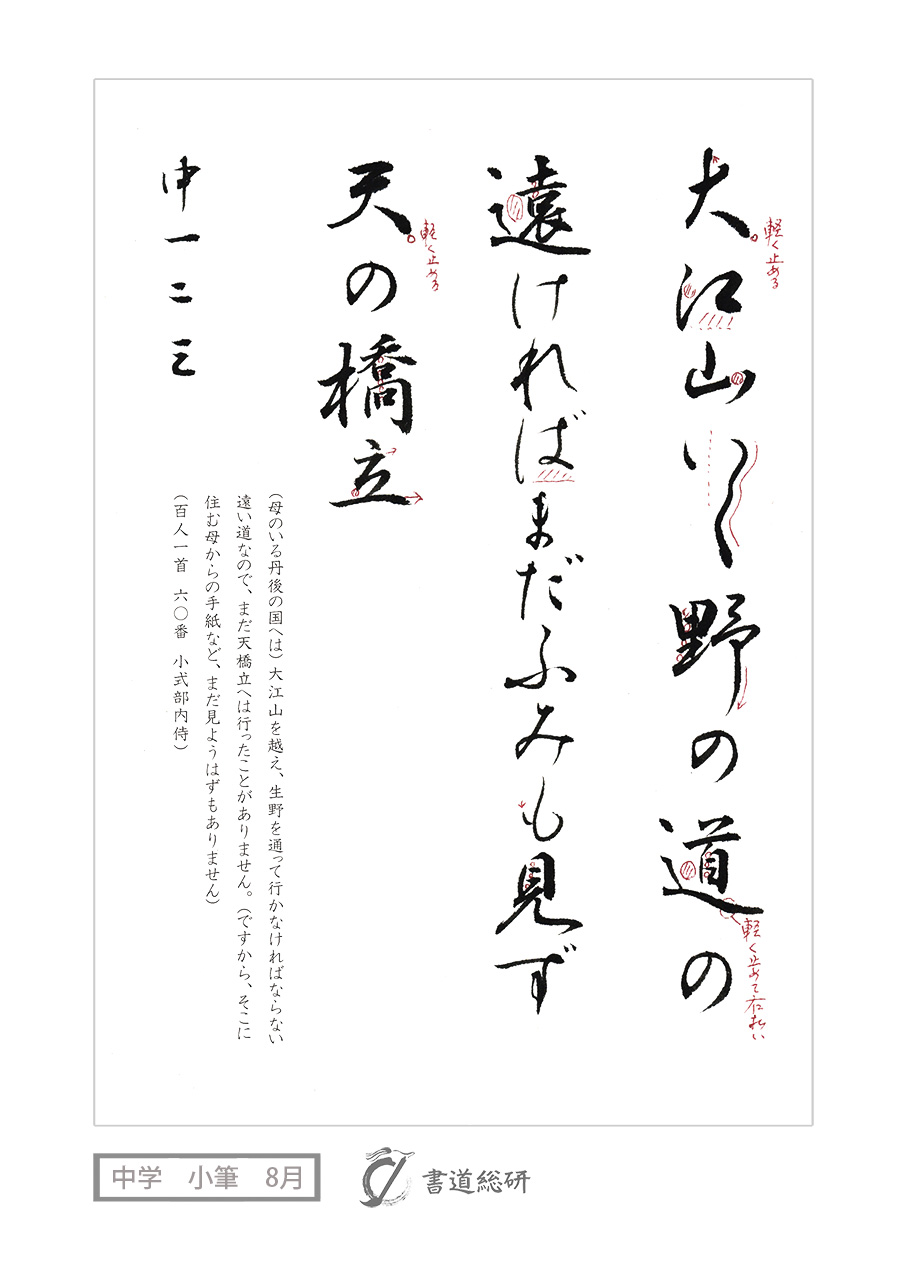 大江山いく野の道の
軽く止める
軽く止めて右に払い
遠ければまだふみも見ず
天の橋立
軽く止める
(母のいる丹後の国へは)大江山を越え、生野を通って行かなければならない
遠い道なので、まだ天橋立へは行ったことがありません。(ですから、そこに
住む母からの手紙など、まだ見ようはずもありません)
(百人一首 六〇番 小式部内侍)
中一二三
中学 小筆 8月
書道総研